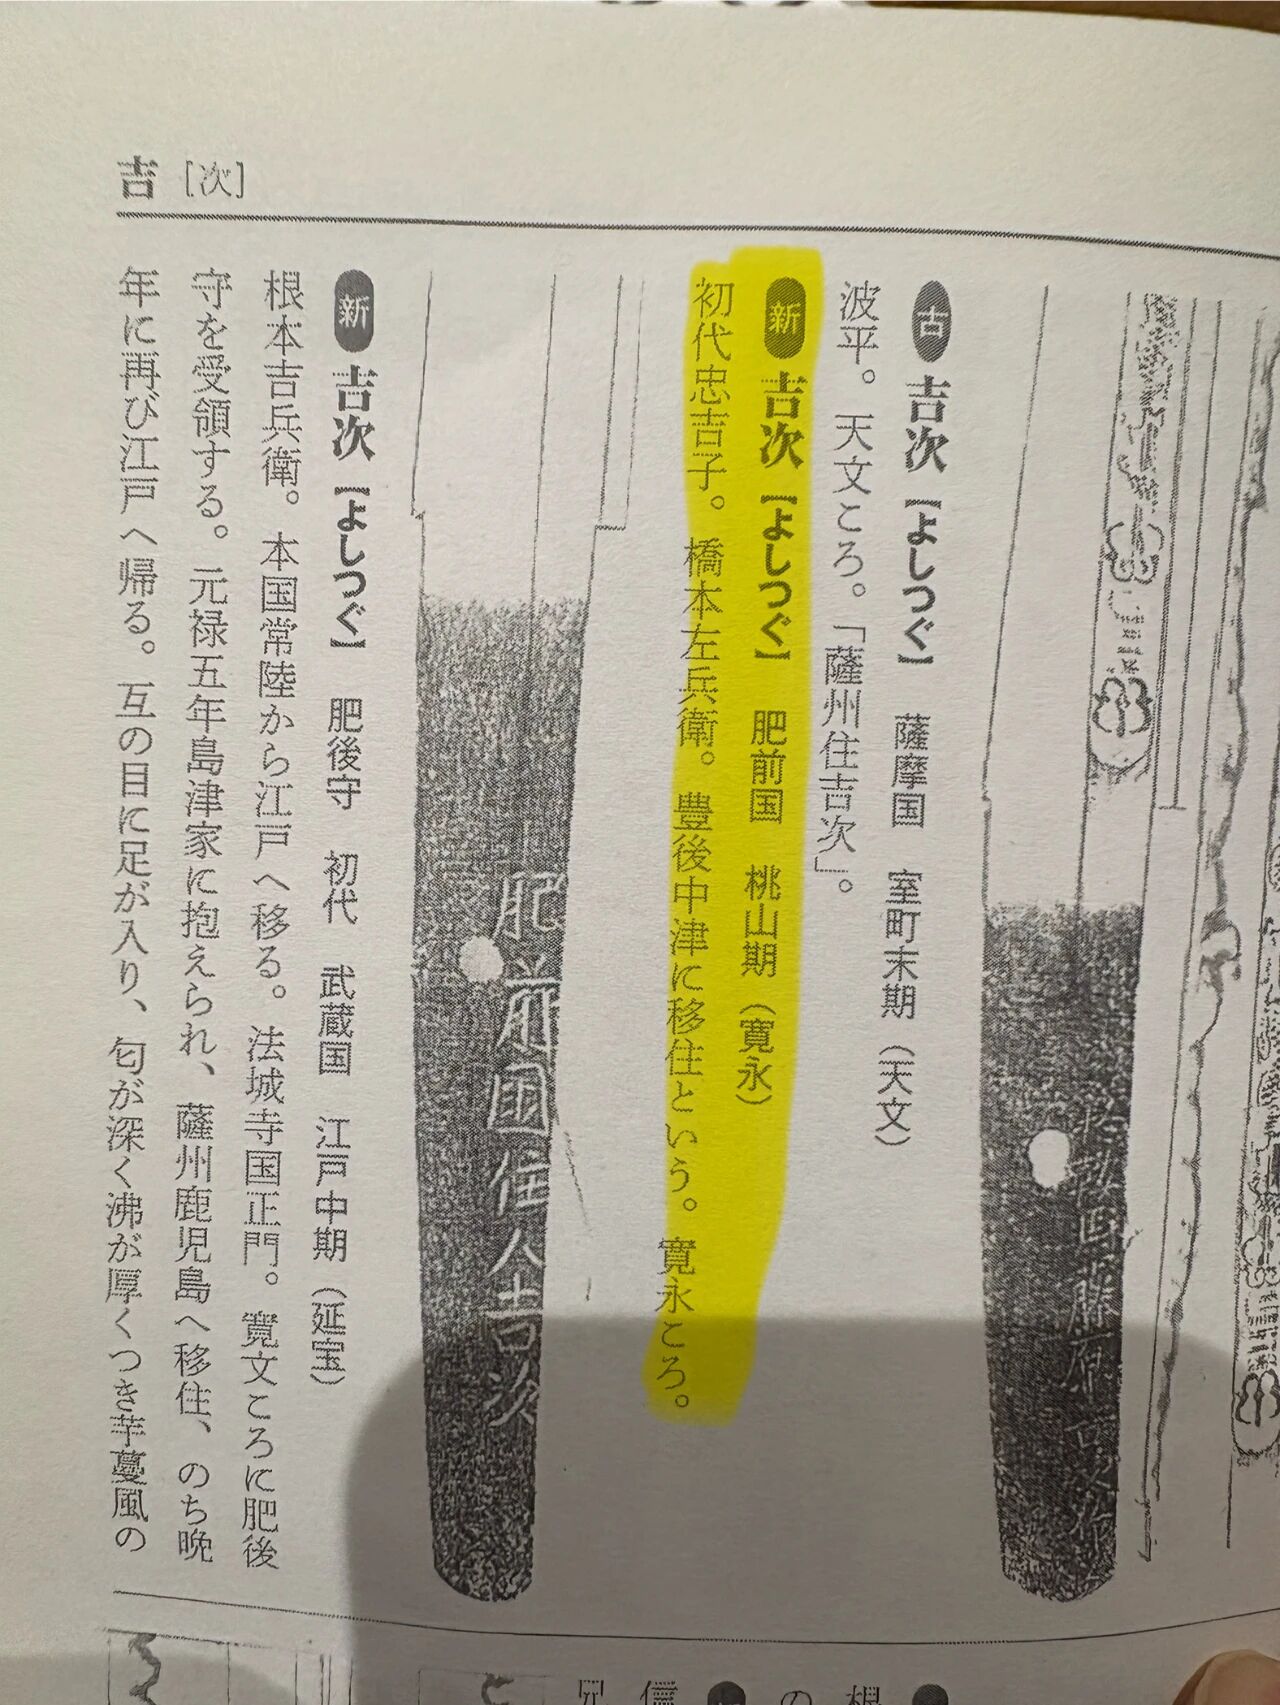 吉 [次]
古 吉次【よしつぐ】 薩摩国 室町末期 (天文)
波平。天文ころ。「薩州住吉次」。
新 吉次【よしつぐ】 肥前国 桃山期 (寛永)
初代忠吉子。橋本左兵衛。豊後中津に移住という。寛永ころ。
肥前国住人吉次
新 吉次【よしつぐ】 肥後守 初代 武蔵国 江戸中期 (延宝)
根本吉兵衛。本国常陸から江戸へ移る。法城寺国正門。寛文ころに肥後
守を受領する。元禄五年島津家に抱えられ、薩州鹿児島へ移住、のち晩
年に再び江戸へ帰る。互の目に足が入り、匂が深く沸が厚くつき芋蔓風の